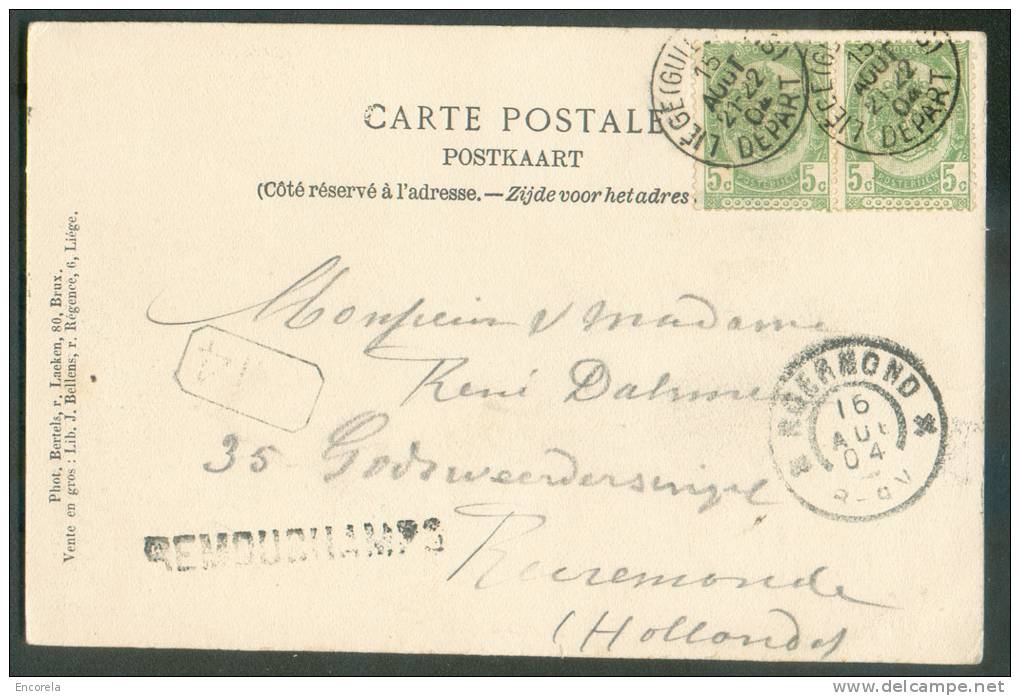 CARTE POSTALE
POSTKAART
(Côté réservé à l'adresse. — Zijde voor het adres
LIÉGE (GUIL
15
AOUT
21-22
04
DÉPART
LIÉGE (G
15
AOUT
21-22
04
DÉPART
5c POSTERIJEN 5c
5c POSTERIJEN 5c
Phot. Bertels, r. Laeken, 80, Brux.
Vente en gros : Lib. J. Bellens, r. Régence, 6, Liége.
Monsieur & Madame
René
35 Godsweerdersingel
Ruremonde
(Hollande)
124
ROERMOND
16
AUG
04
REMOUCHAMPS
Encorela
www.delcampe.net